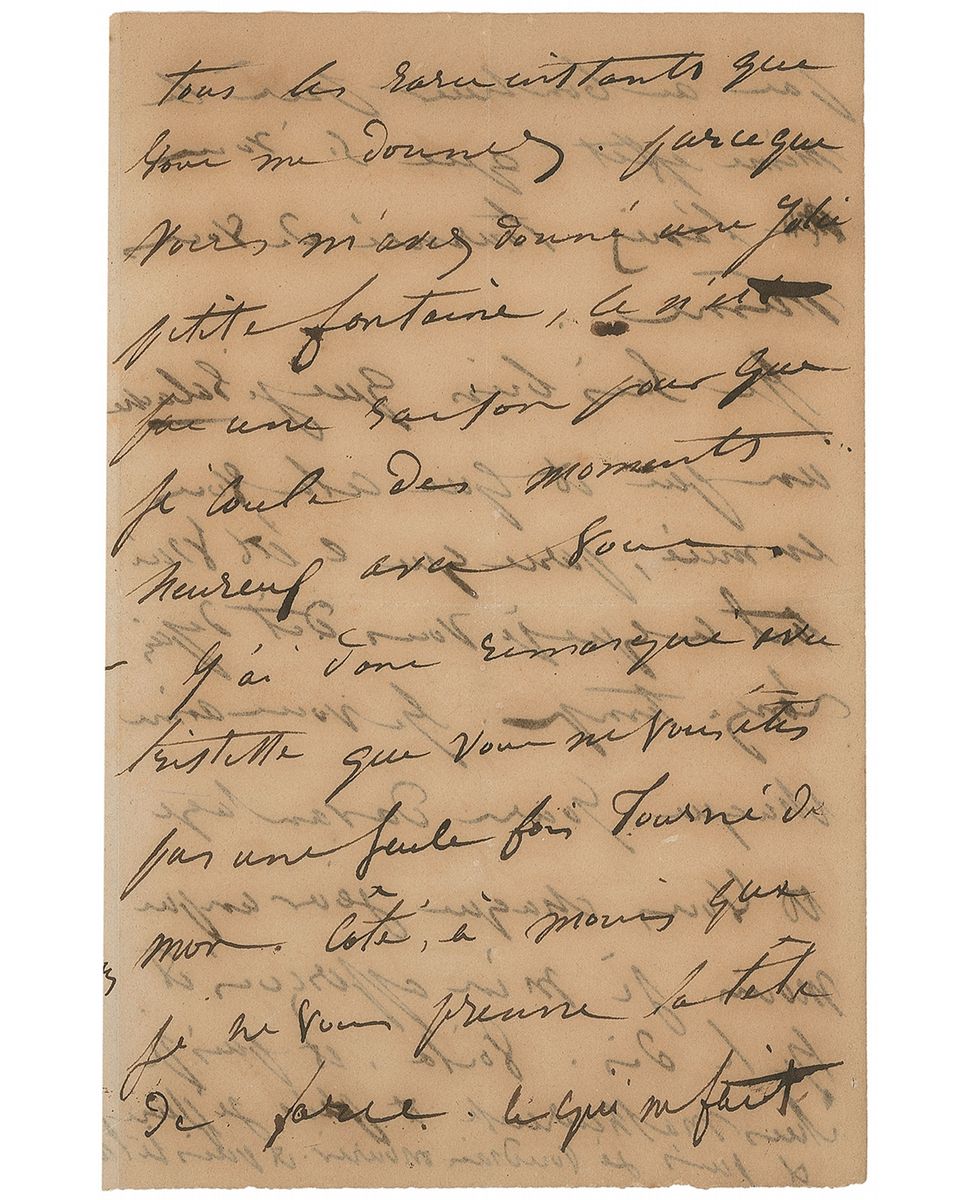 tous les rares instants que
vous me donnez. parceque
vous m'avez donné une jolie
petite fontaine, ce n'est
pas une raison pour que
je coule des moments
heureux avec vous.
J'ai donc remarqué avec
tristesse que vous ne vous êtes
pas une seule fois tourné de
mon côté, à moins que
je ne vous prenne la tête
de force. Ce qui me fait